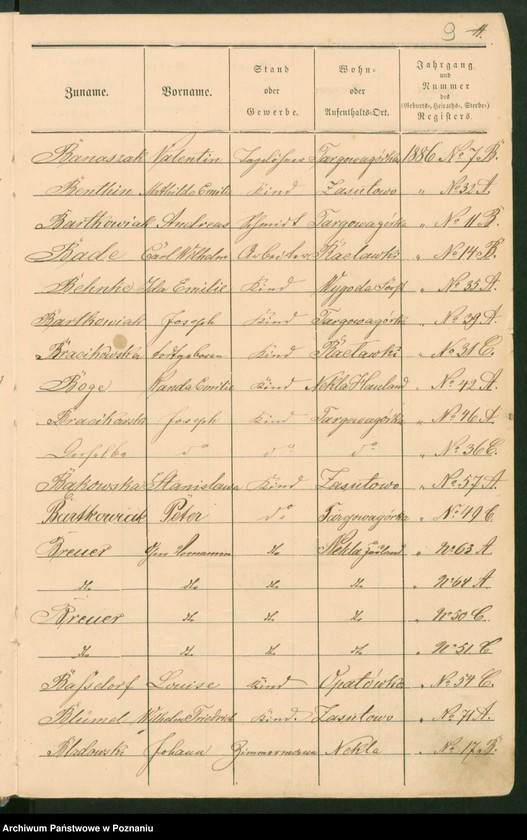 9 4.
Zuname. Vorname. Stand oder Gewerbe. Wohn- oder Aufenthalts-Ort. Jahrgang und Nummer des (Geburts-, Heiraths-, Sterbe-) Registers.
Banaszak Valentin Tagelöhner Targowagórka 1886 No 7 B.
Benthin Mathilde Emilie Kind Zasutowo " No 32 A.
Bartkowiak Andreas Schmidt Targowagórka " No 11 B.
Bade Carl Wilhelm Arbeiter Racławki " No 14 B.
Behnke Ida Emilie Kind Wygoda " No 35 A.
Bartkowiak Joseph Kind Targowagórka " No 39 A.
Bracikowska todtgeboren Kind Racławki " No 31 C.
Böge Wanda Emilie Kind Nekla Hauland " No 42 A.
Bracikowski Joseph Kind Targowagórka " No 46 A.
Derselbe do do do " No 36 C.
Bąkowska Stanisława Kind Zasutowo " No 57 A.
Bartkowiak Peter do Targowagórka " No 49 C.
Breuer do Nekla Hauland " No 63 A.
do do do do " No 64 A.
Breuer do do do " No 50 C.
do do do do " No 51 C.
Bassdorf Louise Kind Opatówko " No 54 C.
Blümel Wilhelm Friedrich Kind Zasutowo " No 71 A.
Johann Zimmermann Nekla " No 17 B.
Archiwum Państwowe w Poznaniu